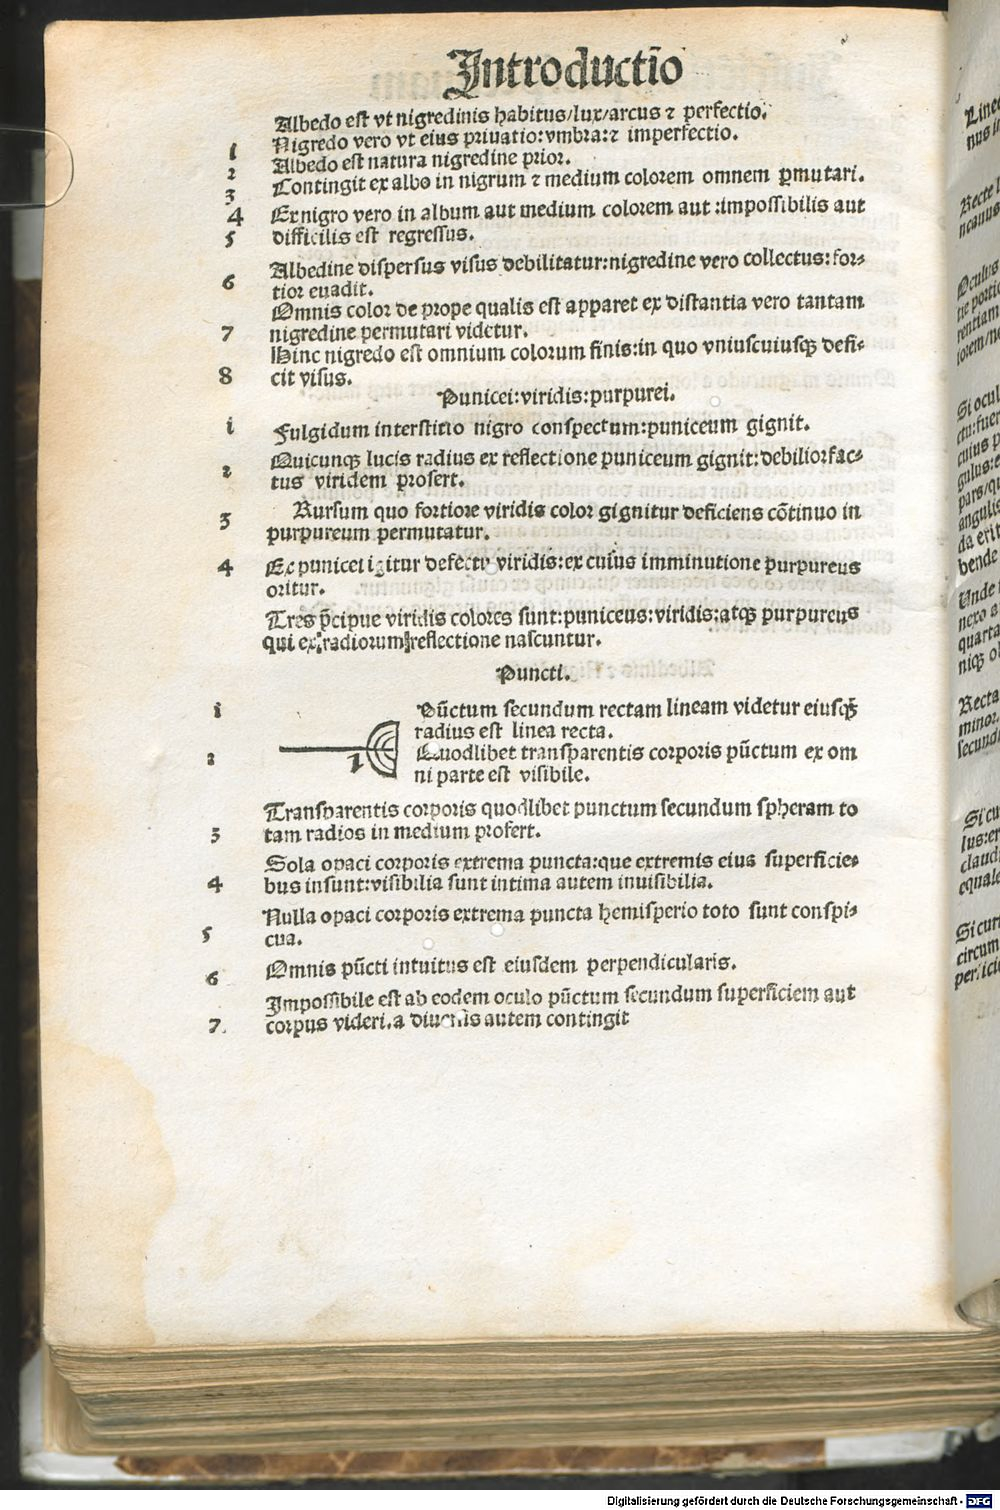 Introductiõ
Albedo est vt nigredinis habitus/lux/arcus ⁊ perfectio.
Nigredo vero vt eius priuatio:vmbra:⁊ imperfectio.
1
Albedo est natura nigredine prior.
2
Contingit ex albo in nigrum ⁊ medium colorem omnem ꝑmutari.
3
4 Ex nigro vero in album aut medium colorem aut :impossibilis aut
5 difficilis est regressus.
Albedine dispersus visus debilitatur:nigredine vero collectus:for⸗
6 tior euadit.
Omnis color de prope qualis est apparet ex distantia vero tantam
7 nigredine permutari videtur.
Hinc nigredo est omnium colorum finis:in quo vniuscuiusqꝫ defi⸗
8 cit visus.
Punicei:viridis:purpurei.
i Fulgidum interstitio nigro conspectum:puniceum gignit.
2 Quicunqꝫ lucis radius ex reflectione puniceum gignit:debilior fac⸗
tus viridem profert.
3 Rursum quo fortiore viridis color gignitur deficiens cõtinuo in
purpureum permutatur.
4 Ex punicei igitur defectu viridis:ex cuius imminutione purpureus
oritur.
Tres p̃cipue viridis colores sunt:puniceus:viridis:atqꝫ purpureus
qui ex radiorum reflectione nascuntur.
Puncti.
i Pũctum secundum rectam lineam videtur eiusqꝫ
radius est linea recta.
2 Quodlibet transparentis corporis pũctum ex om
1
ni parte est visibile.
Transparentis corporis quodlibet punctum secundum spheram to
3 tam radios in medium profert.
Sola opaci corporis extrema puncta:que extremis eius superficie⸗
4 bus insunt:visibilia sunt intima autem inuisibilia.
Nulla opaci corporis extrema puncta hemisperio toto sunt conspi⸗
5 cua.
6 Omnis pũcti intuitus est eiusdem perpendicularis.
Impossibile est ab eodem oculo pũctum secundum superficiem aut
7. corpus videri.a diuersis autem contingit
Digitalisierung gefördert durch die Deutsche Forschungsgemeinschaft - DFG